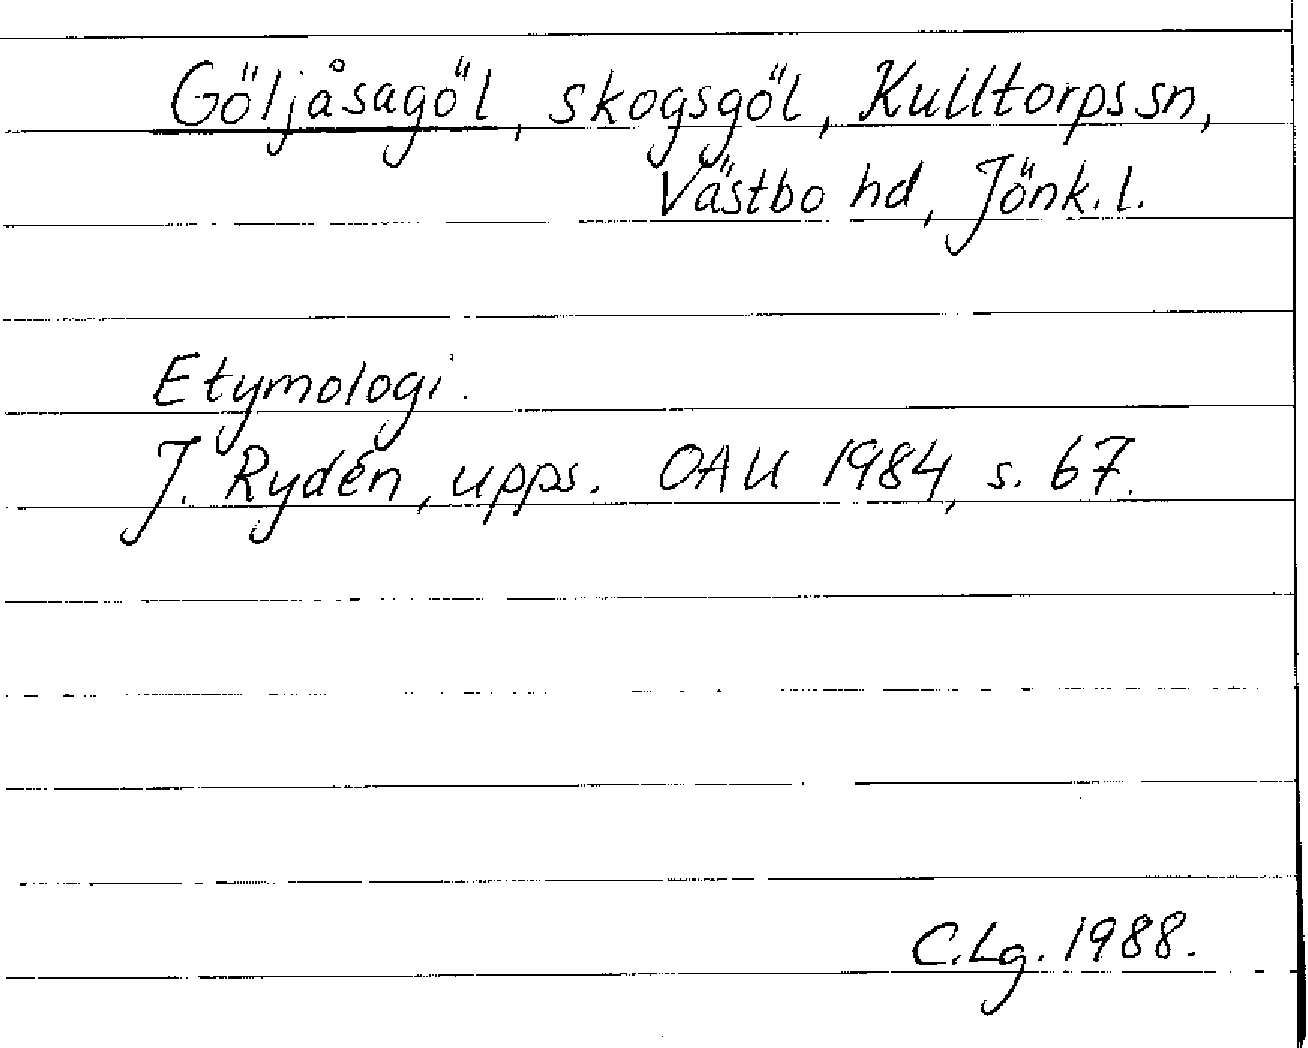 Göljåsagöl, skogsgöl, Kulltorps sn,
Västbo hd, Jönk. l.
Etymologi.
J. Rydén, upps. OAU 1984, s. 67.
C.Lg. 1988.